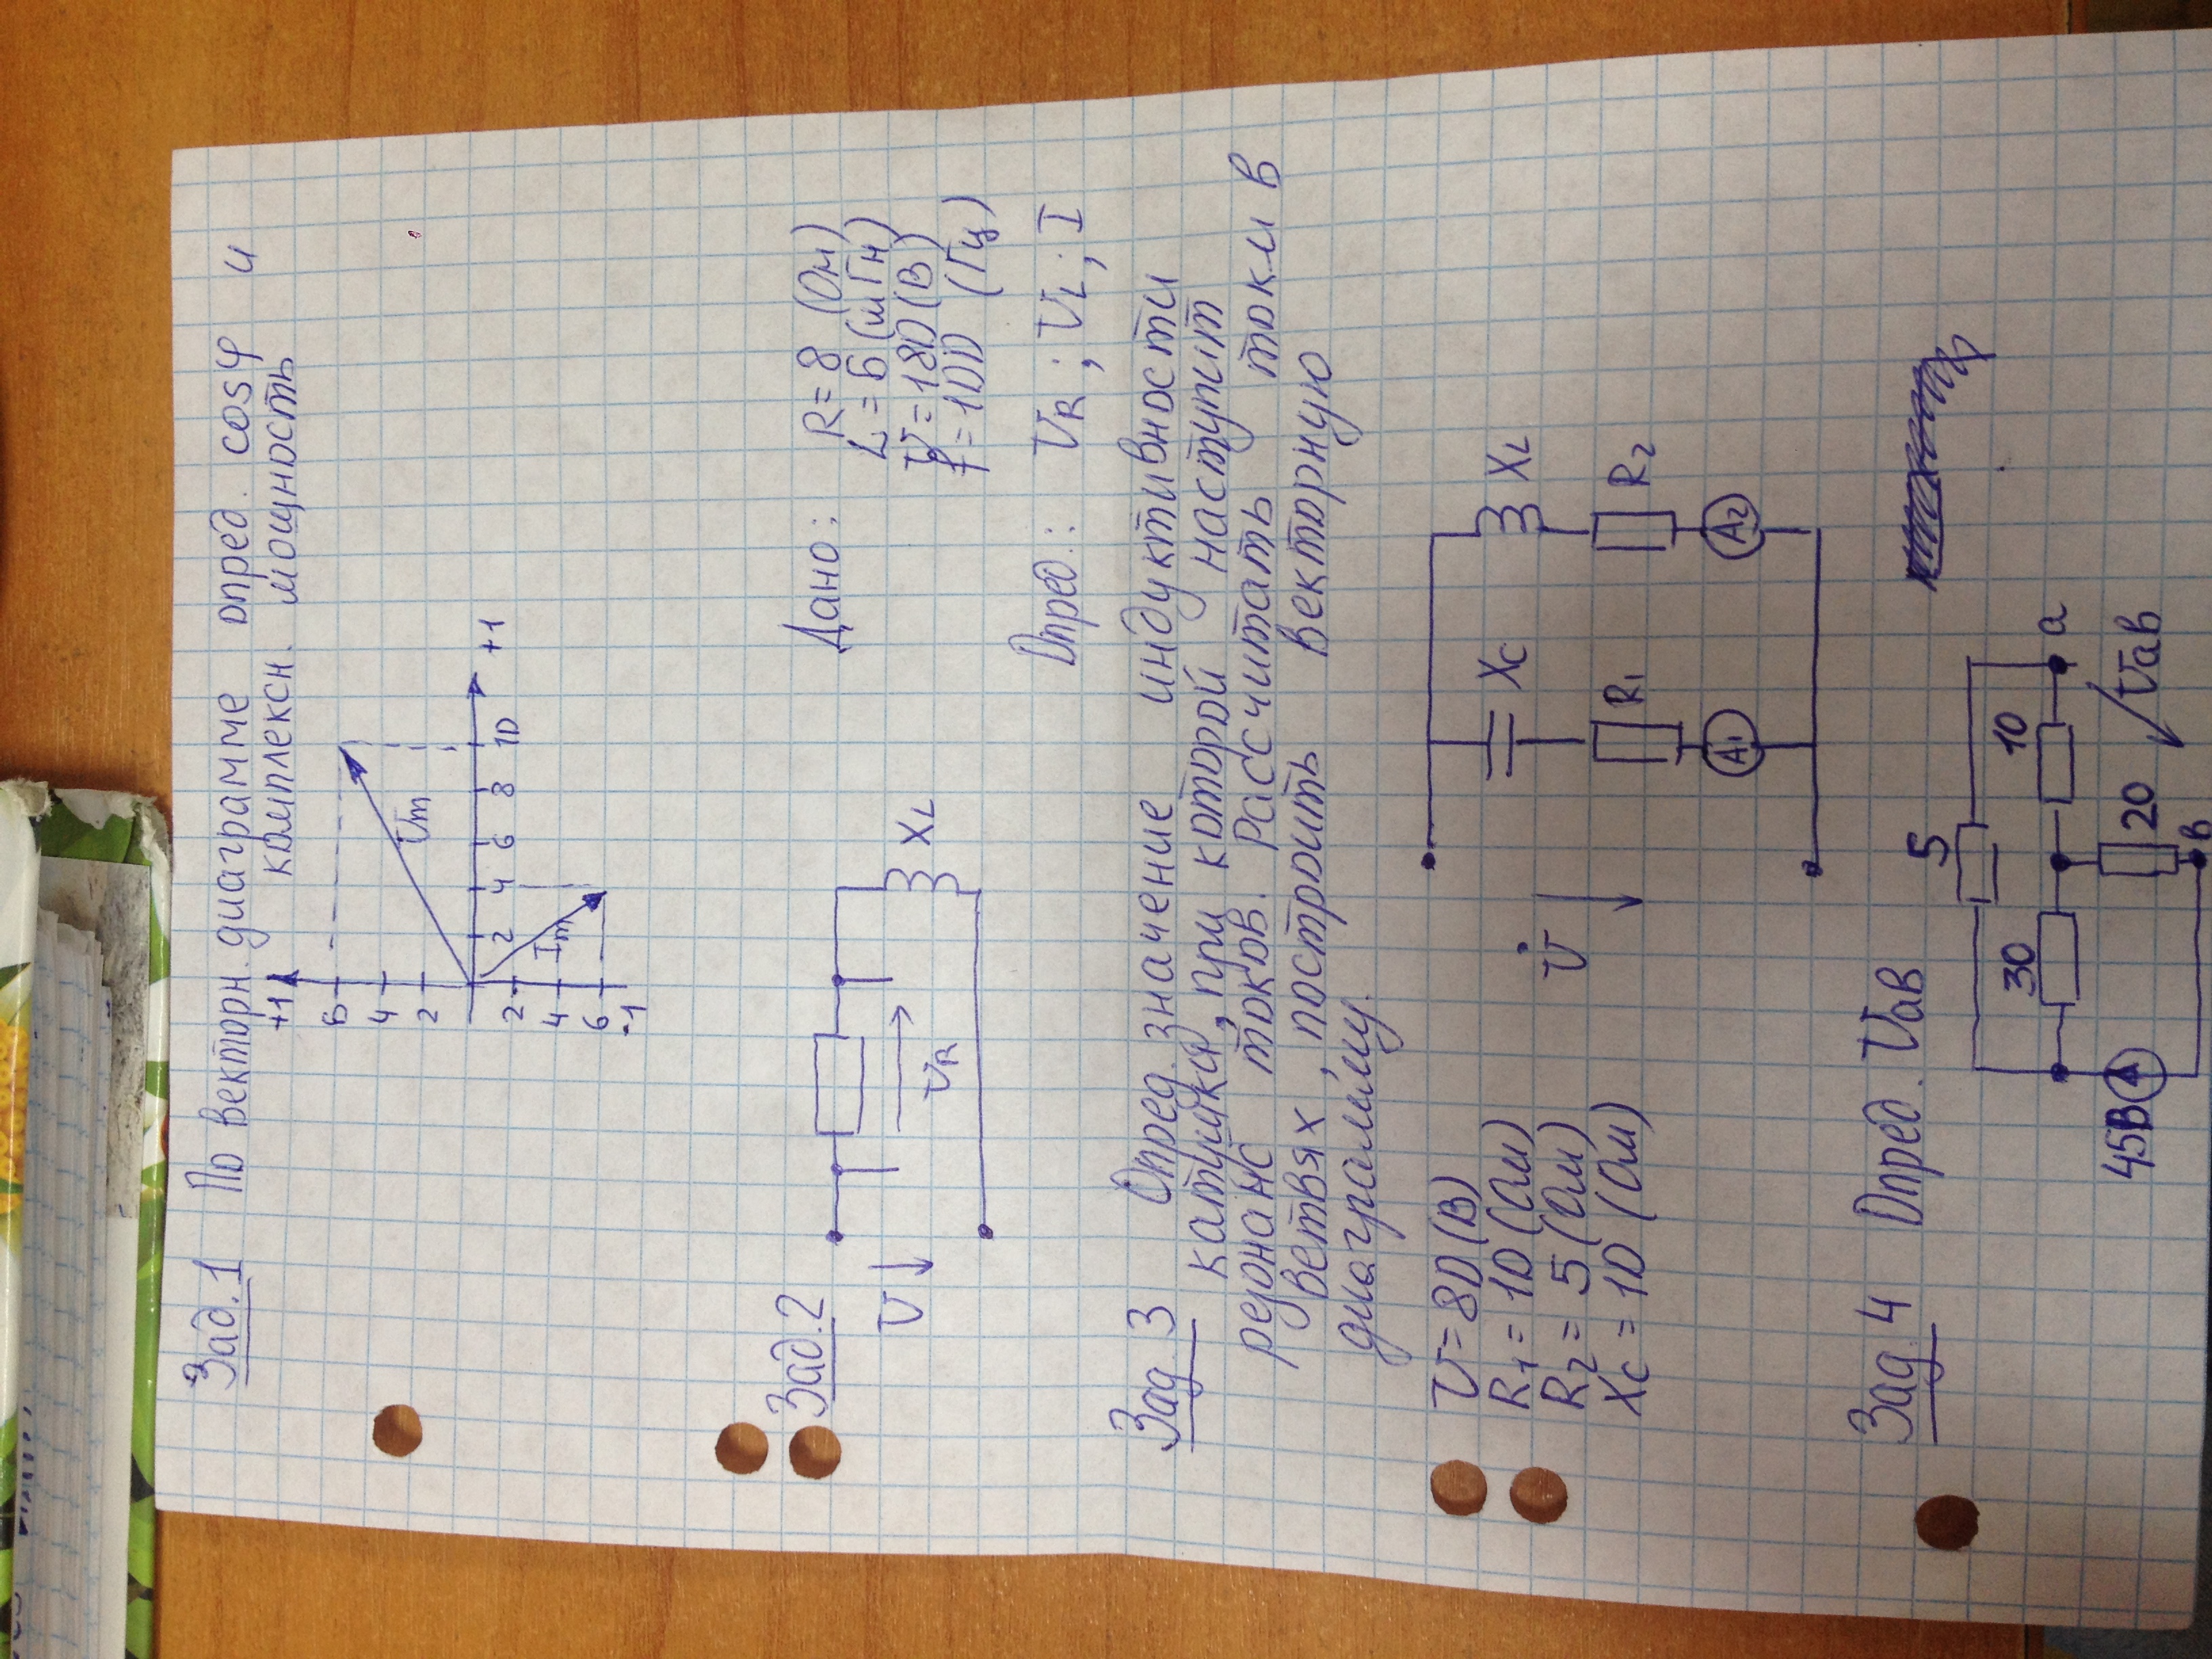 Зад.1 По векторн. диаграмме опред. cosφ и
комплексн. мощность
+1
6
4
2
Um
2 4 6 8 10 +1
2
4
6
Im
-1
Зад.2
U
UR
XL
Дано: R=8 (Ом)
L=6 (мГн)
U=180 (В)
f=100 (Гц)
Опред.: UR; UL; I
Зад 3 Опред. значение индуктивности
катушки, при которой наступит
резонанс токов. Рассчитать токи в
ветвях, построить векторную
диаграмму.
U=80(В)
R1=10(Ом)
R2=5(Ом)
Xc=10(Ом)
U̇
Xc XL
R1 R2
A1 A2
Зад 4 Опред. Uав
5
30 10 а
45В 20 Uав
в